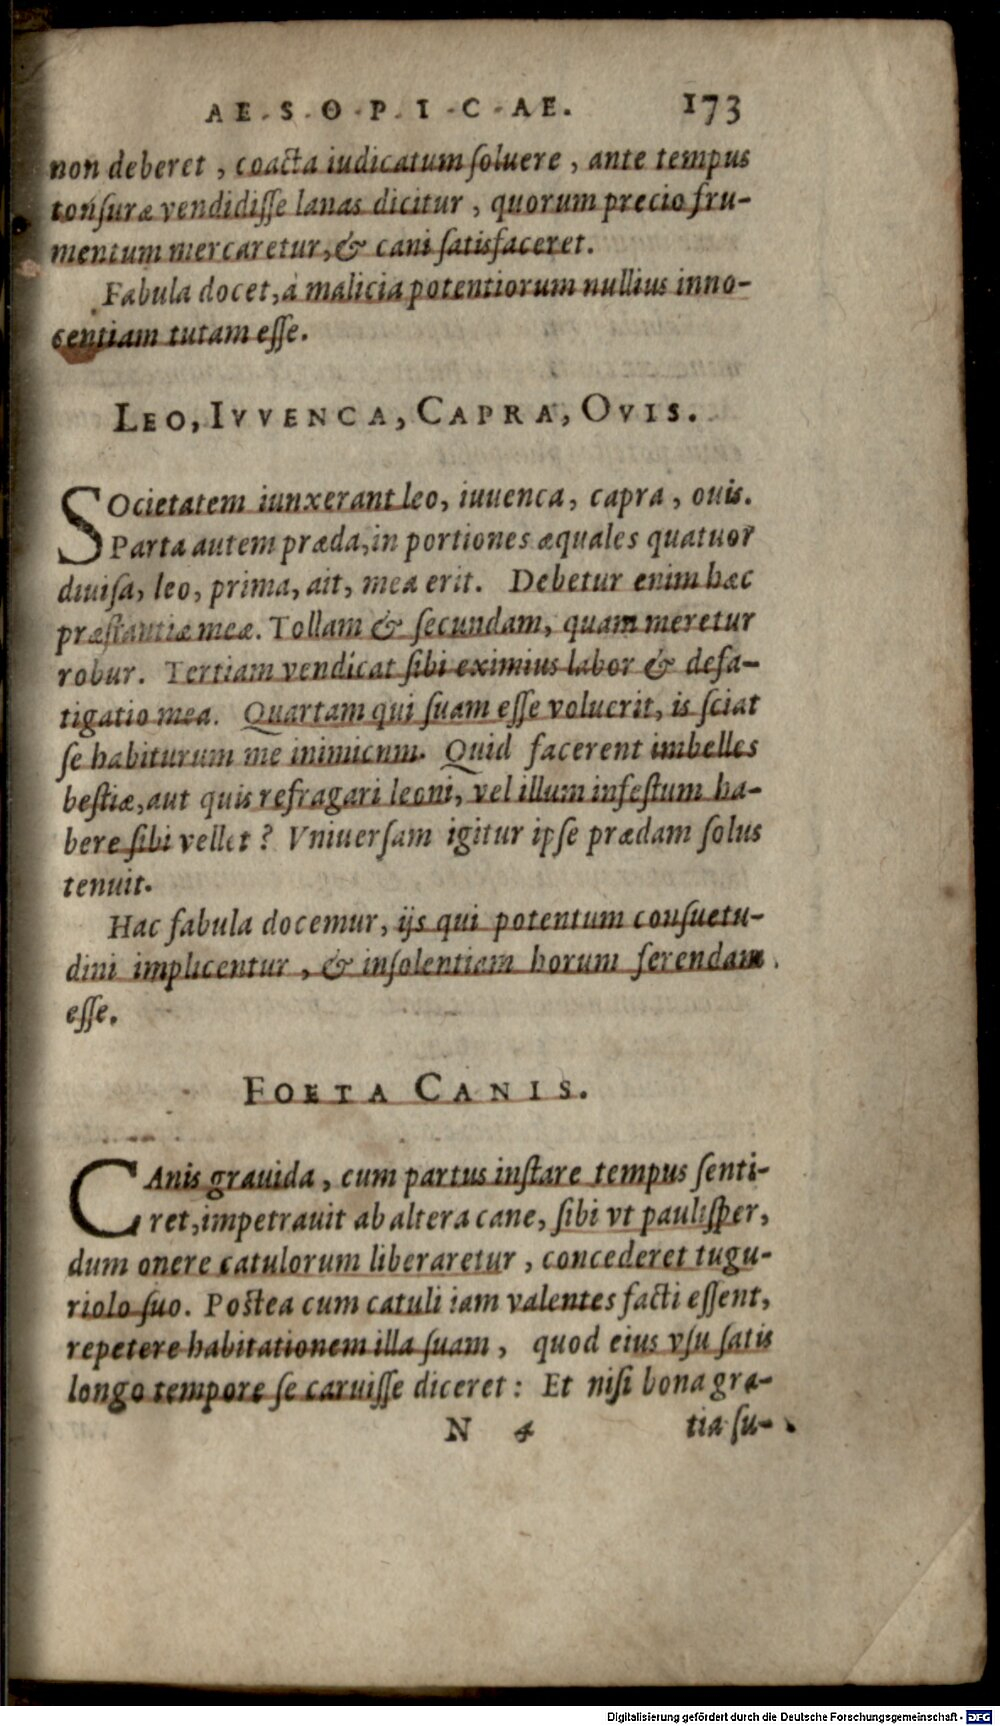 AE.S.O.P.I.C.AE. 173
non deberet, coacta iudicatum ſoluere, ante tempus
tonſuræ vendidiſſe lanas dicitur, quorum precio fru-
mentum mercaretur, & cani ſatisfaceret.
Fabula docet, à malicia potentiorum nullius inno-
centiam tutam eſſe.
LEO, IVVENCA, CAPRA, OVIS.
SOcietatem iunxerant leo, iuuenca, capra, ouis.
Parta autem præda, in portiones æquales quatuor
diuiſa, leo, prima, ait, mea erit. Debetur enim hæc
præſtantiæ meæ. Tollam & ſecundam, quam meretur
robur. Tertiam vendicat ſibi eximius labor & defa-
tigatio mea. Quartam qui ſuam eſſe voluerit, is ſciat
ſe habiturum me inimicum. Quid facerent imbelles
beſtiæ, aut quis refragari leoni, vel illum infeſtum ha-
bere ſibi vellet? Vniuerſam igitur ipſe prædam ſolus
tenuit.
Hac fabula docemur, ijs qui potentum conſuetu-
dini implicentur, & inſolentiam horum ferendam
eſſe.
FOETA CANIS.
CAnis grauida, cum partus inſtare tempus ſenti-
ret, impetrauit ab altera cane, ſibi vt pauliſper,
dum onere catulorum liberaretur, concederet tugu-
riolo ſuo. Poſtea cum catuli iam valentes facti eſſent,
repetere habitationem illa ſuam, quod eius vſu ſatis
longo tempore ſe caruiſſe diceret: Et niſi bona gra-
N 4 tia ſu-
Digitalisierung gefördert durch die Deutsche Forschungsgemeinschaft - DFG